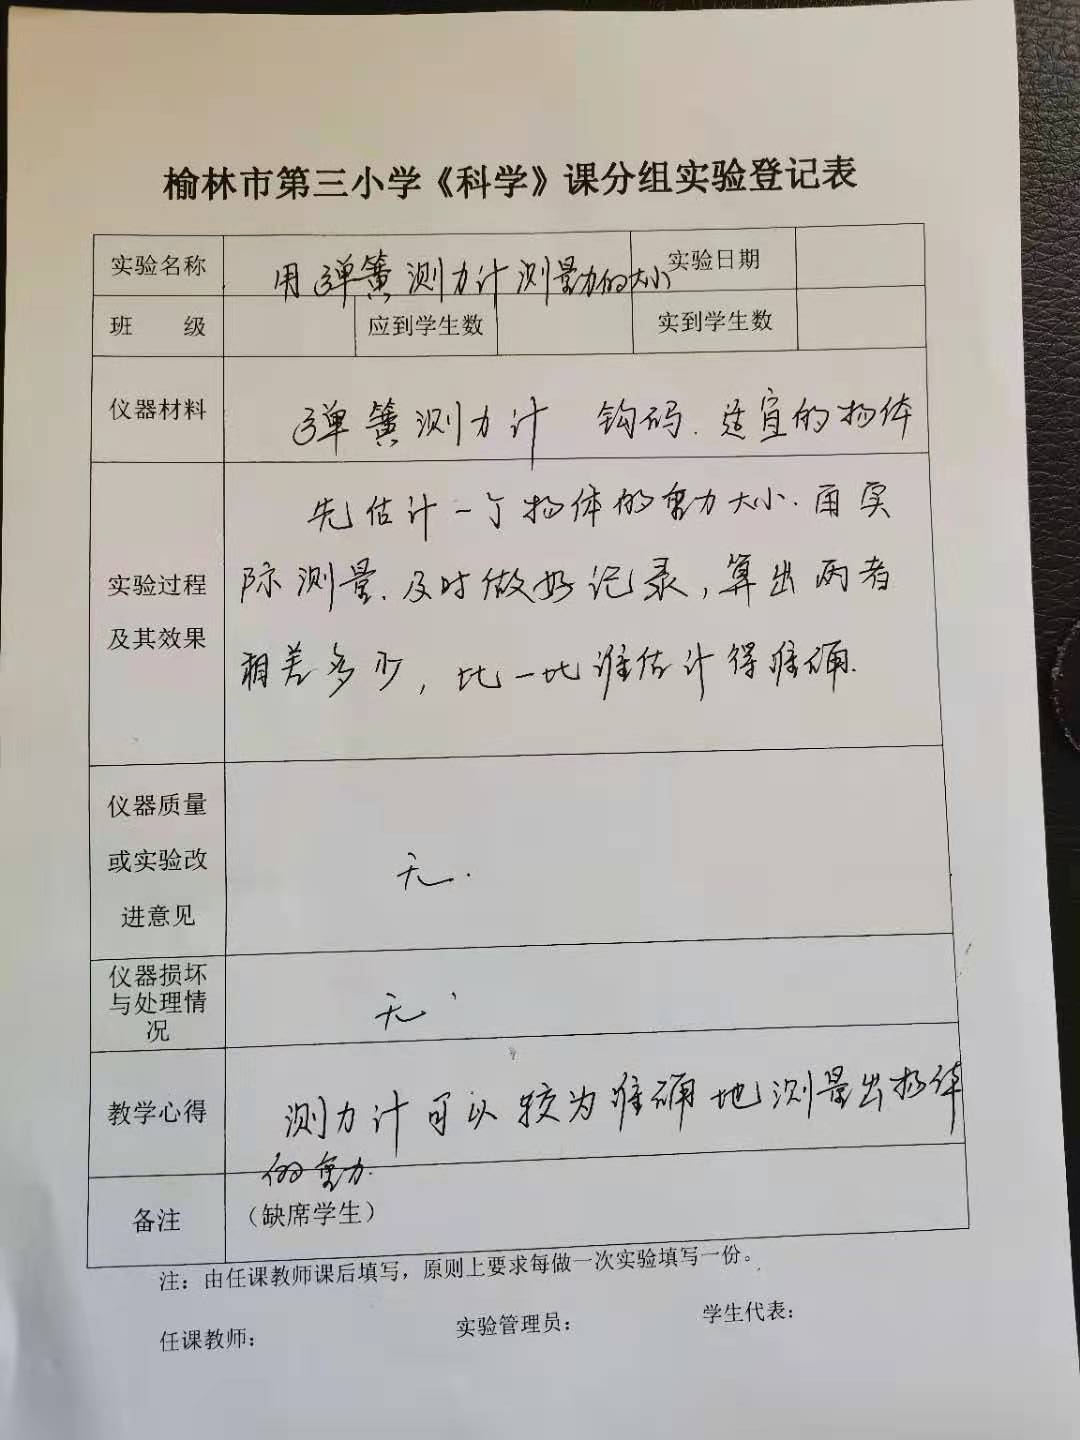 榆林市第三小学《科学》课分组实验登记表
实验名称 用弹簧测力计测量力的大小 实验日期
班 级 应到学生数 实到学生数
仪器材料 弹簧测力计 钩码. 适宜的物体
实验过程
及其效果
先估计一个物体的重力大小.再实
际测量.及时做好记录,算出两者
相差多少,比一比谁估计得准确.
仪器质量
或实验改
进意见
无.
仪器损坏
与处理情
况
无
教学心得
测力计可以较为准确地测量出物体
的重力.
备注 （缺席学生）
注：由任课教师课后填写，原则上要求每做一次实验填写一份。
任课教师： 实验管理员： 学生代表：